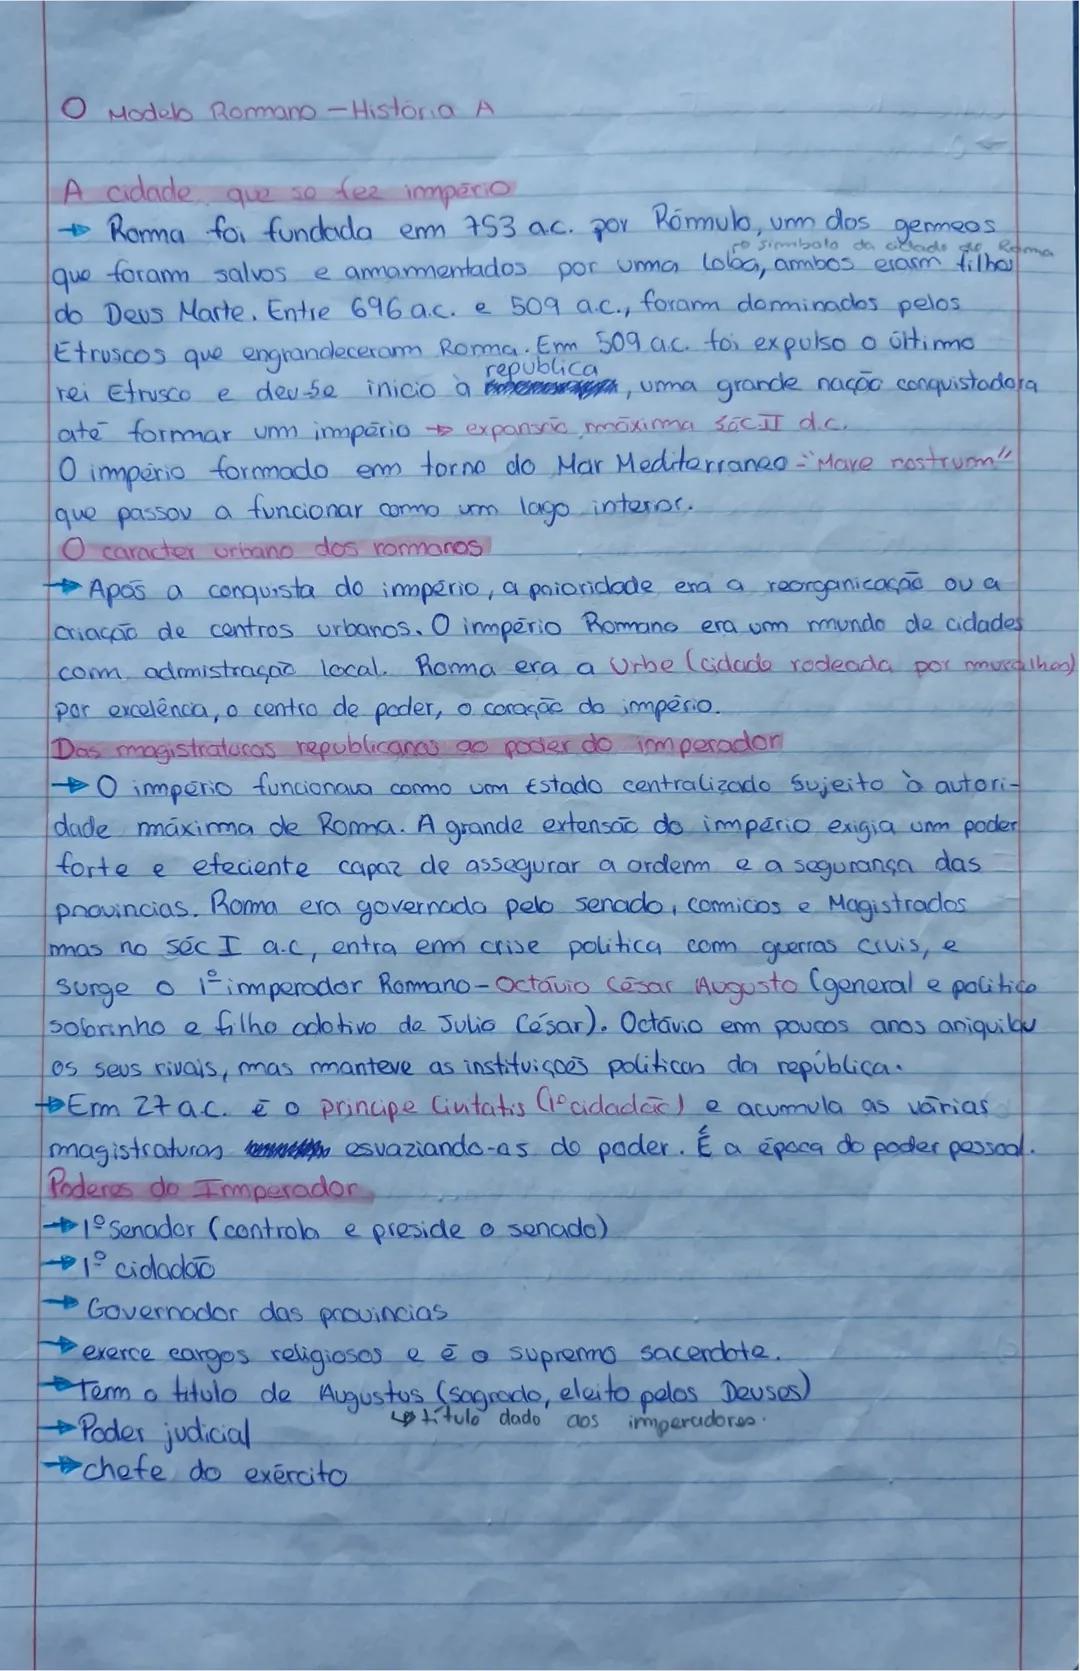 O Modelo Romano - História A
A cidade que se fez império
→ Roma foi fundada em 753 a.c. por Rómulo, um dos gemeos
→ simbolo da cidade de Roma
que foram salvos e amamentados por uma loba, ambos eram filhos
do Deus Marte. Entre 696 a.c. e 509 a.c., foram dominados pelos
Etruscos que engrandeceram Roma. Em 509 a.c. foi expulso o último
republica
rei Etrusco e deu-se inicio à , uma grande nação conquistadora
até formar um império → expansão máxima séc II d.c.
O império formado em torno do Mar Mediterraneo - "Mare nostrum"
que passou a funcionar como um lago interior.
O caracter urbano dos romanos
→ Após a conquista do império, a prioridade era a reorganização ou a
criação de centros urbanos. O império Romano era um mundo de cidades
com admistração local. Roma era a Urbe (cidade rodeada por muralhas)
por excelência, o centro de poder, o coração do império.
Das magistraturas republicanas ao poder do imperador
→ O império funcionava como um Estado centralizado sujeito à autori-
dade máxima de Roma. A grande extensão do império exigia um poder
forte e eficiente capaz de assegurar a ordem e a segurança das
provincias. Roma era governada pelo senado, comicos e Magistrados
mas no séc I a.c, entra em crise politica com guerras civis, e
surge o 1º imperador Romano - Octávio César Augusto (general e politico
sobrinho e filho adotivo de Julio César). Octávio em poucos anos aniquilou
os seus rivais, mas manteve as instituições politicas da república.
→ Em 27 a.c. é o principe Civitatis (1º cidadão) e acumula as várias
magistraturas esvaziando-as do poder. É a época do poder pessoal.
Poderes do Imperador
→ 1º Senador (controla e preside o senado)
→ 1º cidadão
→ Governador das provincias
→ exerce cargos religiosos e é o supremo sacerdote.
→ Tem o titulo de Augustus (sagrado, eleito pelos Deuses)
↳ título dado aos imperadores.
→ Poder judicial
→ chefe do exército